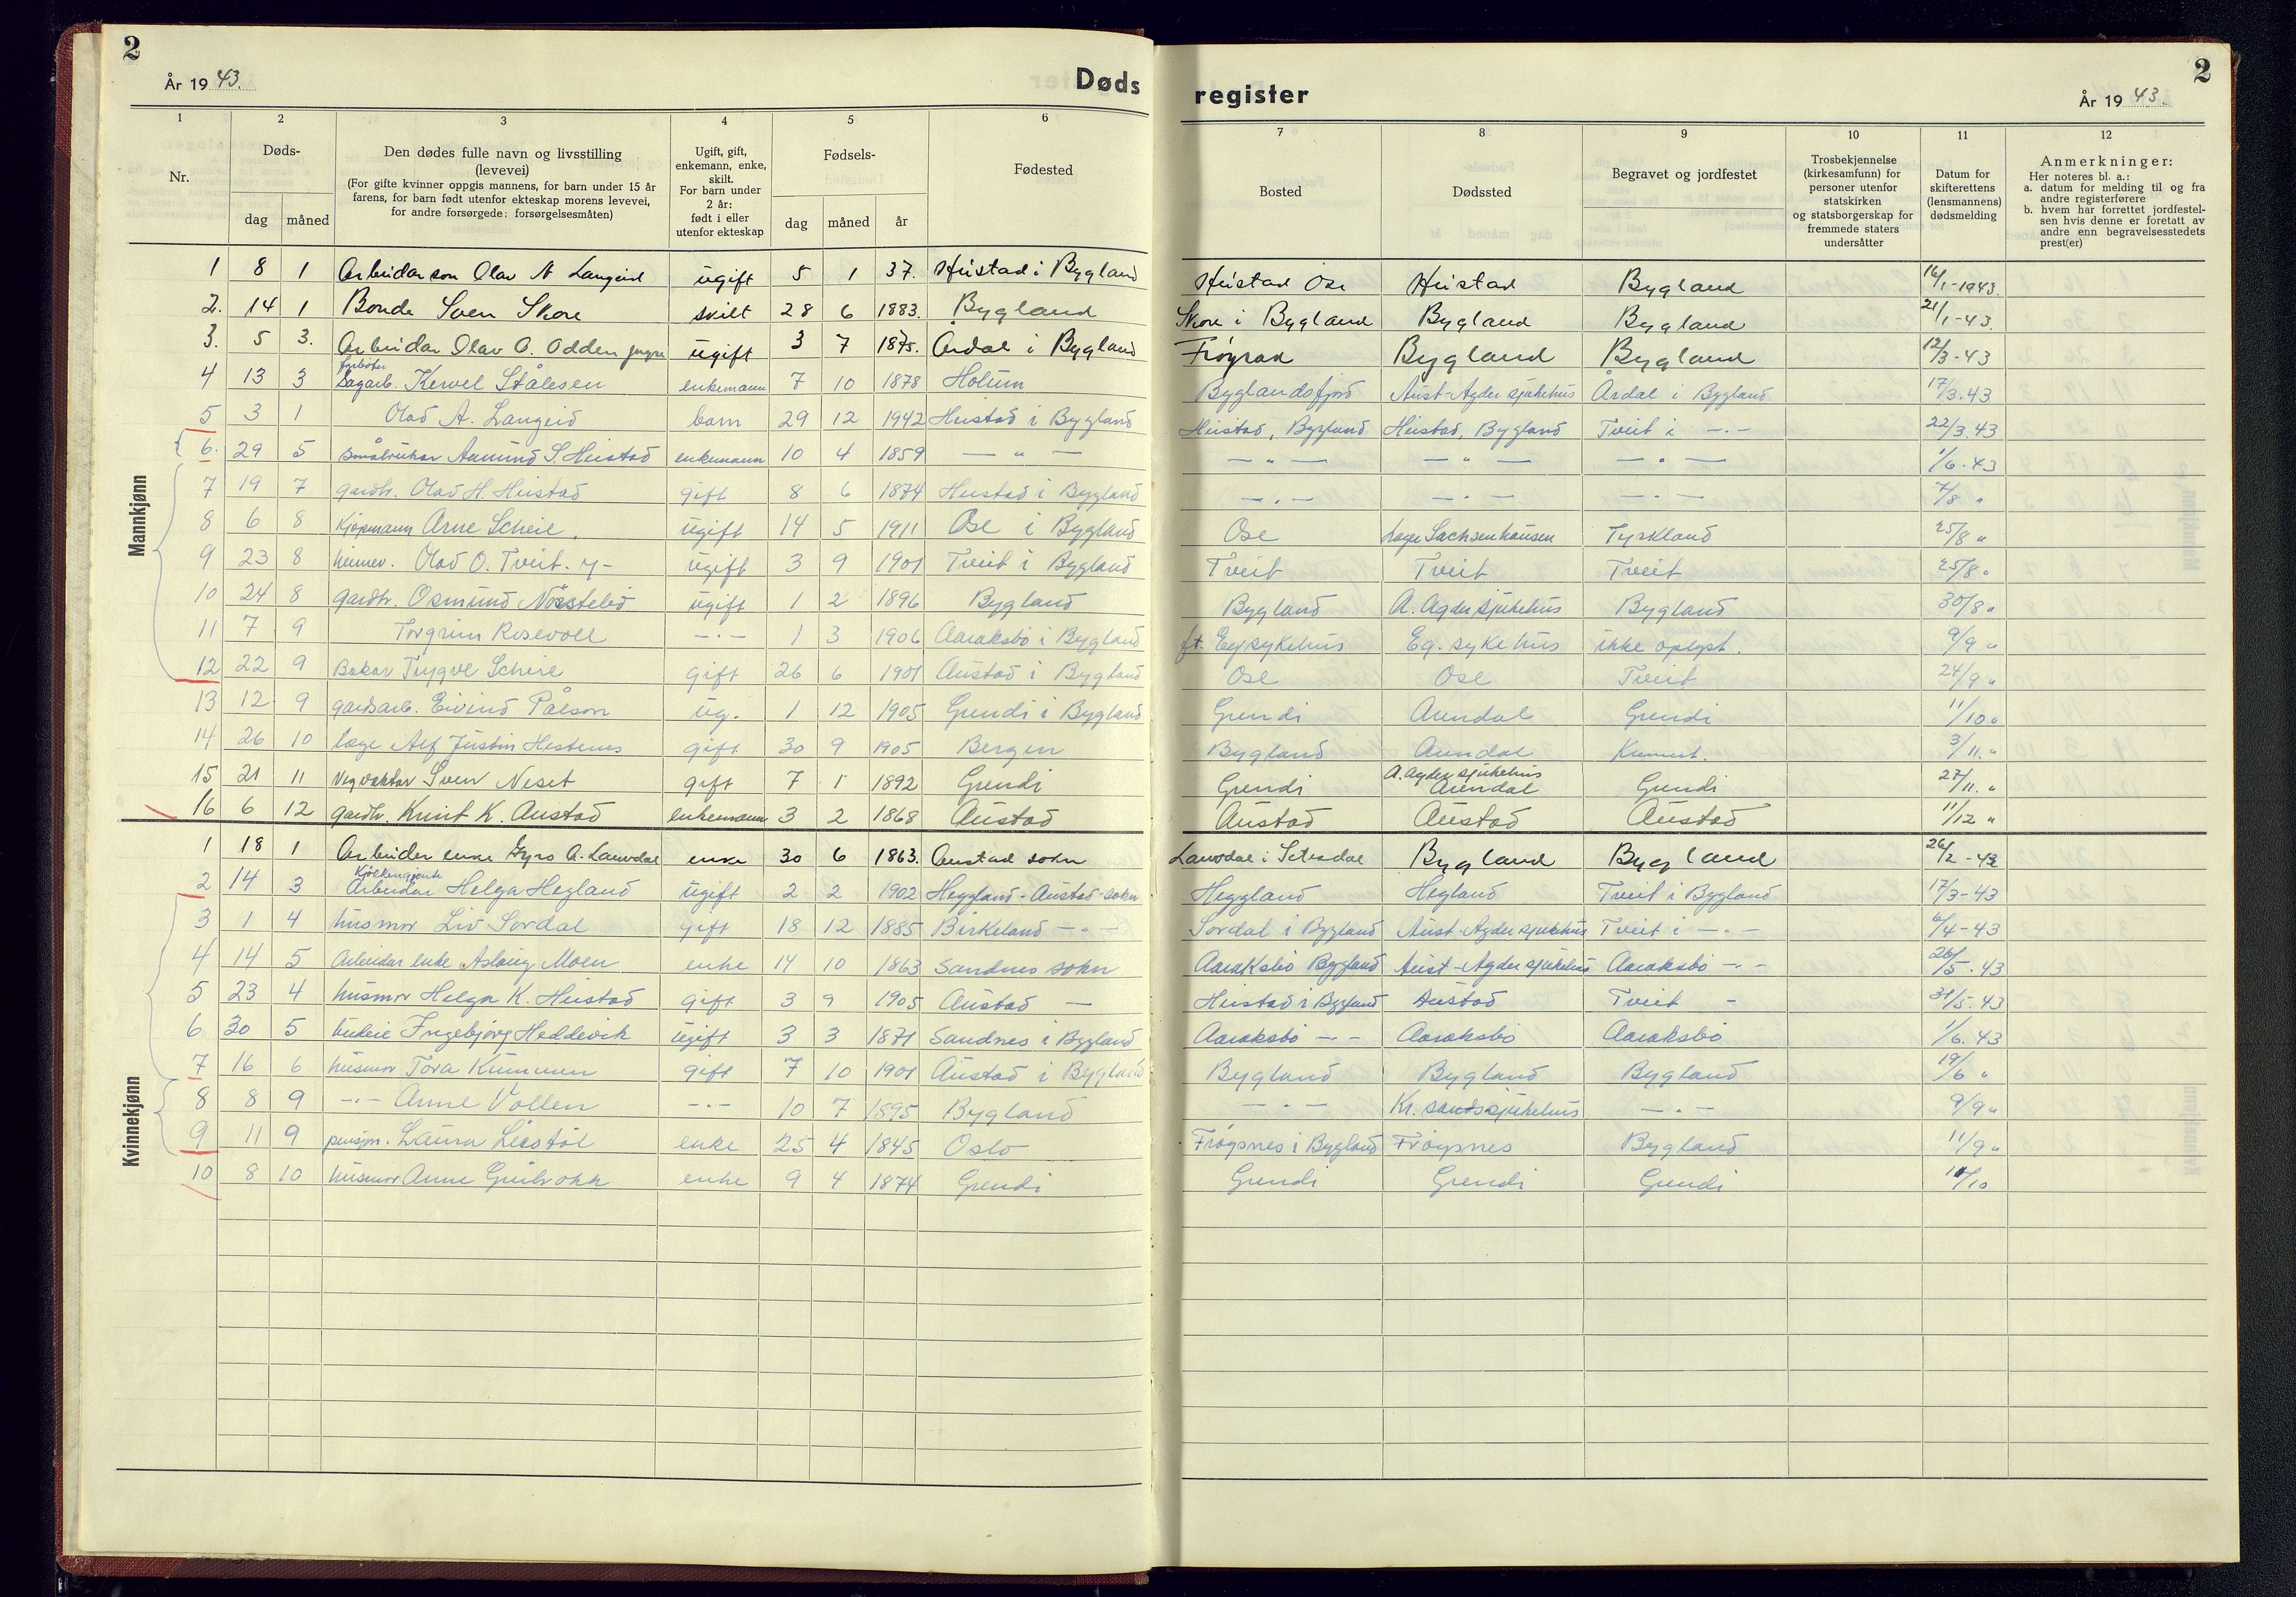 2
År 1943.
Døds
register
År 1943.
2
1 2 3 4 5 6 7 8 9 10 11 12
Nr.
Døds-
dag måned
Den dødes fulle navn og livsstilling
(levevei)
(For gifte kvinner oppgis mannens, for barn under 15 år
farens, for barn født utenfor ekteskap morens levevei,
for andre forsørgede: forsørgelsesmåten)
Ugift, gift,
enkemann, enke,
skilt.
For barn under
2 år:
født i eller
utenfor ekteskap
Fødsels-
dag måned år
Fødested
Bosted
Dødssted
Begravet og jordfestet
Trosbekjennelse
(kirkesamfunn) for
personer utenfor
statskirken
og statsborgerskap for
fremmede staters
undersåtter
Datum for
skifterettens
(lensmannens)
dødsmelding
Anmerkninger:
Her noteres bl. a.:
a. datum for melding til og fra
andre registerførere
b. hvem har forrettet jordfestel-
sen hvis denne er foretatt av
andre enn begravelsesstedets
prest(er)
Mannkjønn
1 8 1 Arbeidar son Olav N Langeid ugift 5 1 37. Heistad i Bygland Heistad Ose Heistad Bygland 16/1-1943.
2. 14 1 Bonde Sven Skore skilt 28 6 1883. Bygland Skore i Bygland Bygland Bygland 21/1-43.
3. 5 3. Arbeidar Olav O. Odden yngre ugift 3 7 1875. Årdal i Bygland Frøyrak Bygland Bygland 12/3-43
4 13 3 Sagarb. Kevel Stålesen enkemann 7 10 1878 Holum Byglandsfjord Aust-Agder sjukehus Årdal i Bygland 17/3.43
5 3 1 Olav A. Langeid barn 29 12 1942 Heistad i Bygland Heistad, Bygland Heistad, Bygland Tveit i -"- 22/3.43
6. 29 5 småbrukar Aamund S. Heistad enkemann 10 4 1859 -"- -"- -"- -"- 1/6.43
7 19 7 gardbr. Olav H. Heistad gift 8 6 1874 Heistad i Bygland -"- -"- -"- 7/8 "
8 6 8 Kjøpmann Arne Scheie. ugift 14 5 1911 Ose i Bygland Ose Lager Sachsenhausen Tyskland 25/8 "
9 23 8 heimev. Olav O. Tveit. y- ugift 3 9 1901 Tveit i Bygland Tveit Tveit Tveit 25/8 "
10 24 8 gardbr. Osmund Nesstelid ugift 1 2 1896 Bygland Bygland A. Agder sjukehus Bygland 30/8 "
11 7 9 Torgrim Rosevoll -"- 1 3 1906 Aaraksbø i Bygland ft. Eg sykehus Eg. sykehus ikke oplyst. 9/9 "
12 22 9 Bakar Trygve Scheie gift 26 6 1901 Austad i Bygland Ose Ose Tveit 24/9 "
13 12 9 gardsarb. Eivind Pålson ug. 1 12 1905 Grendi i Bygland Grendi Arendal Grendi 11/10 "
14 26 10 lege Alf Justin Hestenes gift 30 9 1905 Bergen Bygland Arendal Kremert. 3/11. "
15 21 11 Vegvaktar Sven Neset gift 7 1 1892 Grendi Grendi A. Agder sjukehus Arendal Grendi 27/11. "
16 6 12 gardbr. Knut K. Austad enkemann 3 2 1868 Austad Austad Austad Austad 11/12 "
Kvinnekjønn
1 18 1 Arbeider enke Gyro A. Lauvdal enke 30 6 1863. Austad sokn Lauvdal i Setesdal Bygland Bygland 26/2-43
2 14 3 Kjøkkengjente Arbeidar Helga Hegland ugift 2 2 1902 Heggland-Austad-sokn Heggland Hegland Tveit i Bygland 17/3-43
3 1 4 husmor Liv Sordal gift 18 12 1885 Birkeland -"- Sordal i Bygland Aust-Agder sjukehus Tveit i -"- 6/4-43
4 14 5 Arbeidar enke Aslaug Moen enke 14 10 1863 Sandnes sokn Aaraksbø Bygland Aust-Agder sjukehus Aaraksbø -"- 26/5.43
5 23 4 husmor Helga K. Heistad gift 3 9 1905 Austad - Heistad i Bygland Austad Tveit - 31/5.43
6 30 5 Ingebjørg Heddevik ugift 3 3 1871 Sandnes i Bygland Aaraksbø -"- Aaraksbø Aaraksbø 1/6.43
7 16 6 husmor Tora Kummen gift 7 10 1901 Austad i Bygland Bygland Bygland Bygland 19/6 "
8 8 9 -"- Anne Vollen -"- 10 7 1895 Bygland -"- Kr. sandssjukehus -"- 9/9 "
9 11 9 pensjon. Laura Liestøl enke 25 4 1845 Oslo Frøysnes i Bygland Frøysnes Bygland 11/9 "
10 8 10 husmor Anne enke 9 4 1874 Grendi Grendi Grendi Grendi /10